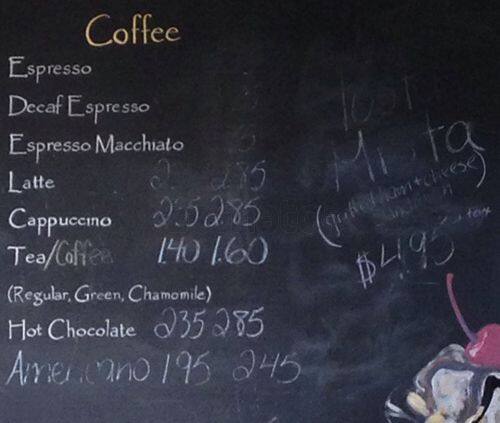 Coffee
Espresso
Decaf Espresso
Espresso Macchiato
Latte 285
Cappuccino 235 285
Tea/Coffee 1.40 1.60
(Regular, Green, Chamomile)
Hot Chocolate 235 285
Americano 195 245
ham + cheese
$4.95 + tax